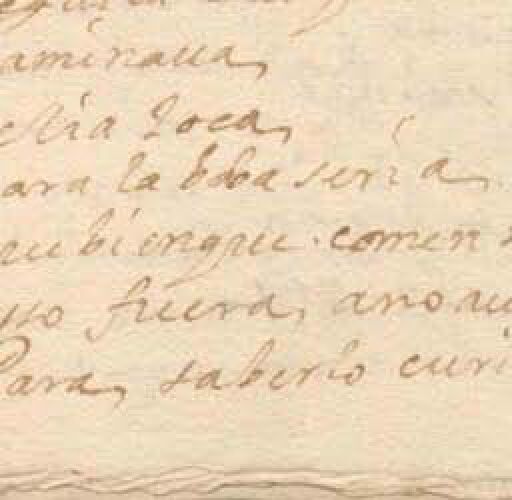 aminaua
estia loca
ara la boba seria
que bien que comen
sso fuera, ano au
Para saberlo curi